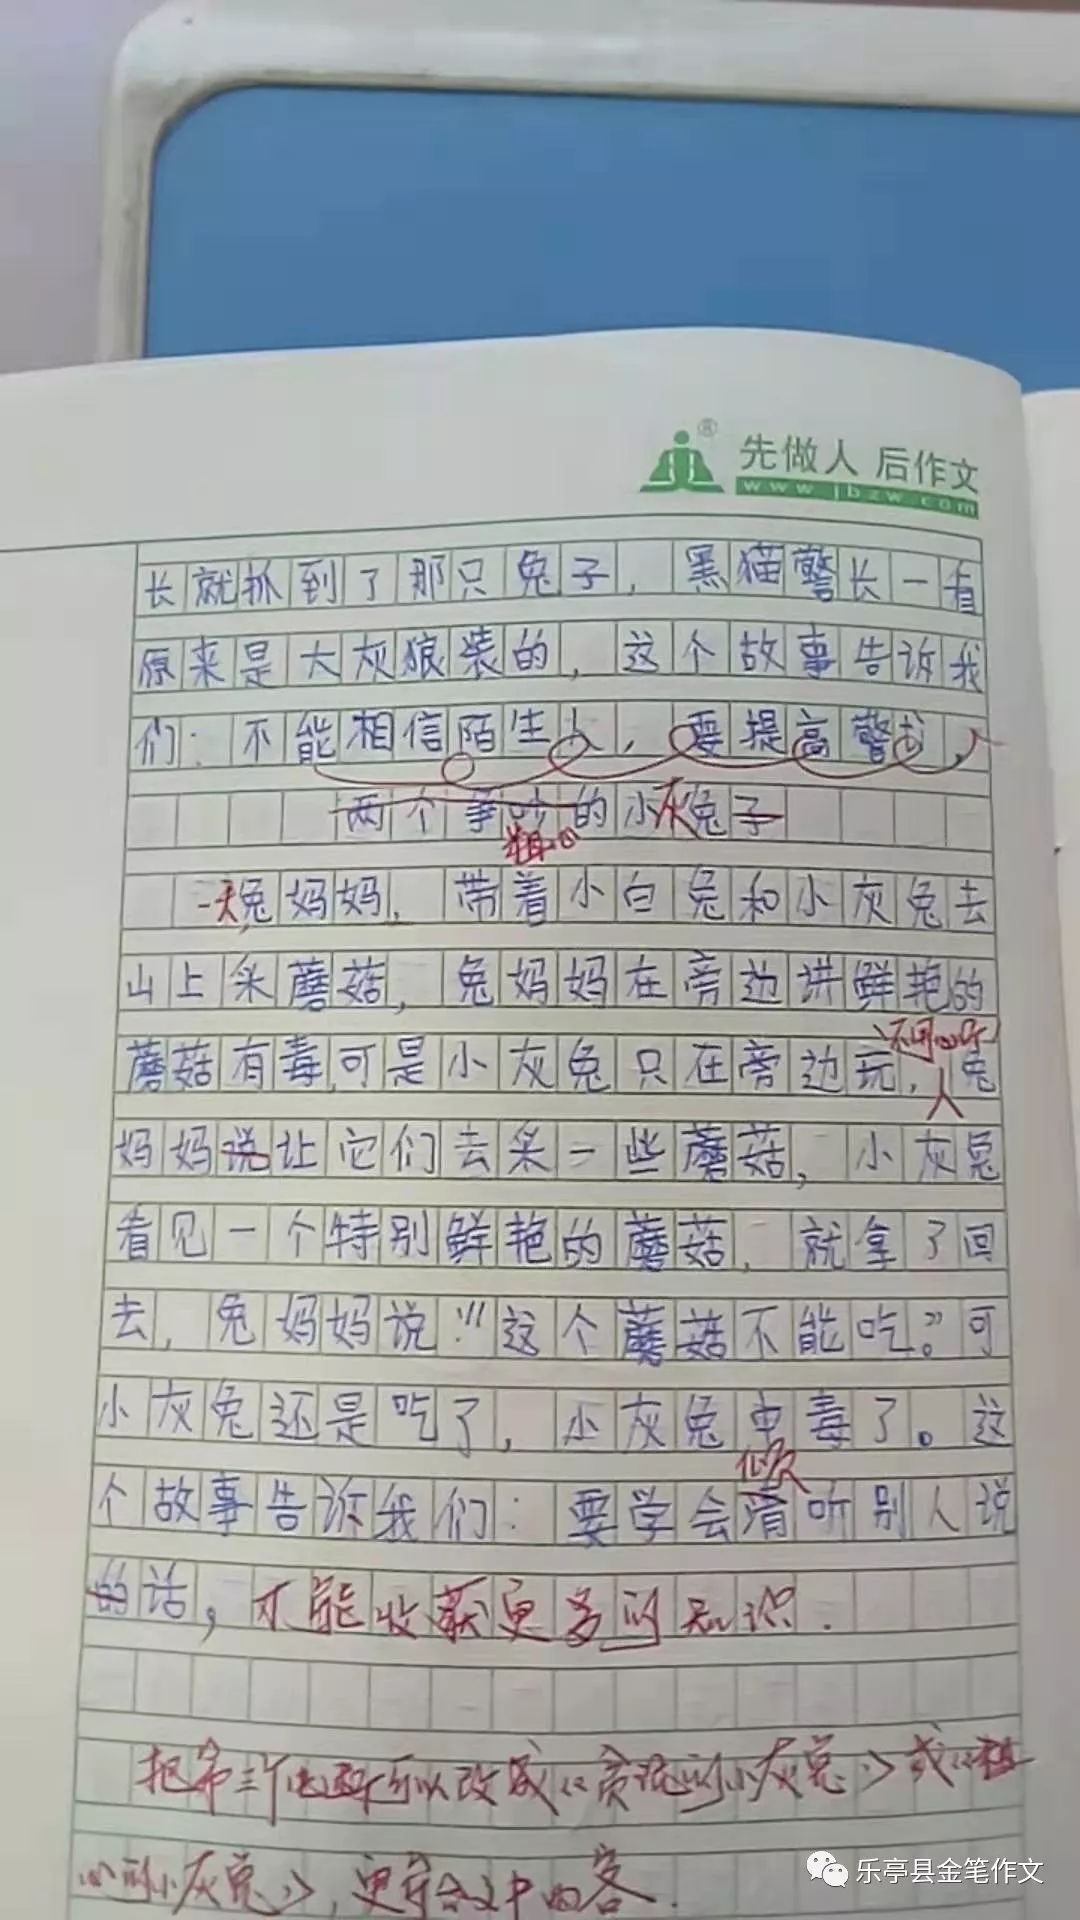 先做人 后作文
www.jbzw.com
长就抓到了那只兔子，黑猫警长一看
原来是大灰狼装的，这个故事告诉我
们：不能相信陌生人，要提高警戈，
两个争吵的小灰兔子
粗心
一天，兔妈妈，带着小白兔和小灰兔去
山上采蘑菇，兔妈妈在旁边讲鲜艳的
不用心听
蘑菇有毒，可是小灰兔只在旁边玩，兔
妈妈说让它们去采一些蘑菇，小灰兔
看见一个特别鲜艳的蘑菇，就拿了回
去，兔妈妈说：“这个蘑菇不能吃。”可
小灰兔还是吃了，小灰兔中毒了。这
个故事告诉我们：要学会听别人说
的话，才能收获更多的知识.
把第三个可以改成《贪玩的小灰兔》或《粗
心的小灰兔》，更符合文中内容.
乐亭县金笔作文